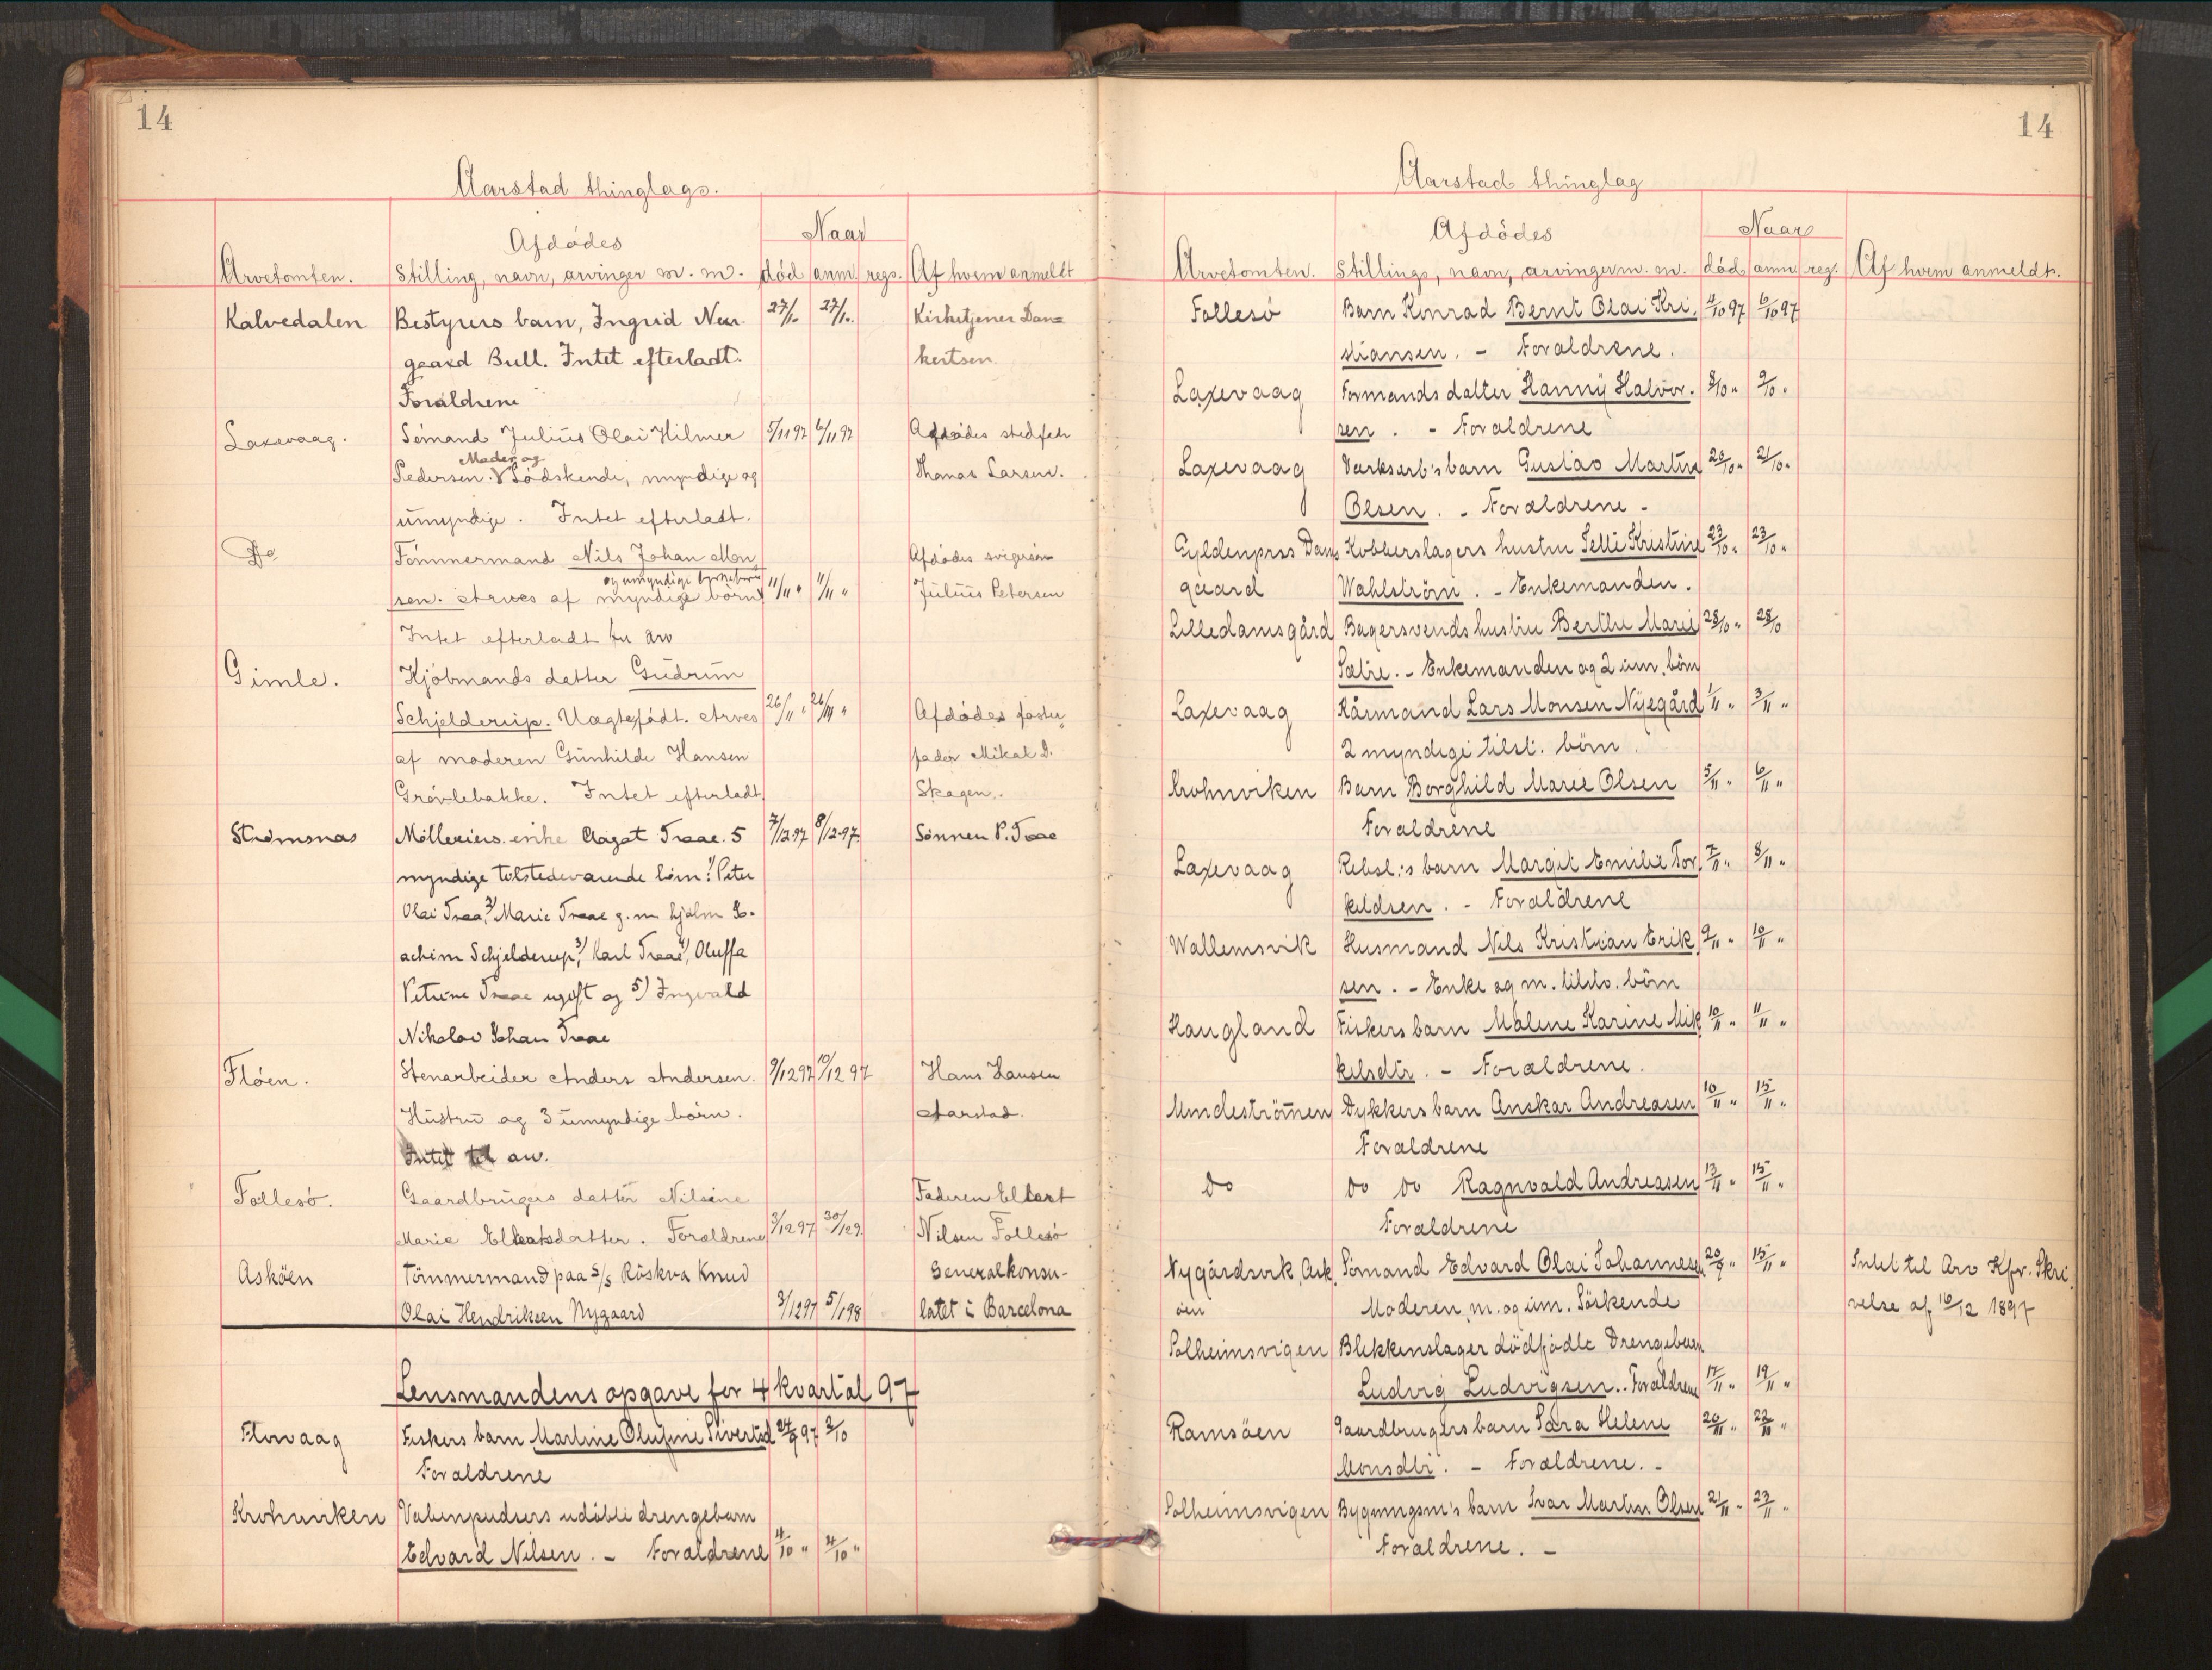 14
Aarstad thinglags.
Afdödes
Naar
Arvetomten. Stilling, navn, arvinger m. m. död anm. regs. Af hvem anmeldt
Kalvedalen Bestyrers barn, Ingrid Neu- 27/1. 27/1. Kirketjener Dan=
gaard Bull. Intet efterladt. kertsen.
Forældrene
Laxevaag. Sömand Julius Olai Hilmer 5/11 97 6/11 97 Afdödes stedfader
Moder og
Pedersen. V Södskende, myndige og Thomas Larsen.
umyndige. Intet efterladt.
Do Tömmermand Nils Johan Mon Afdödes svigersön
og umyndige børnebørn
sen. Arves af myndige börn 11/11 " 11/11 " Julius Petersen
Intet efterladt til arv
Gimle. Kjöbmands datter Gudrun
Schjelderup. Uægtefödt. Arves 26/11 " 26/11 " Afdödes foster
af moderen Gunhilde Hansen fader Mikal D.
Grövlebakke. Intet efterladt. Skagen.
Strömsnæs Mölleriers enke Aagot Traae. 5 7/12 97 8/12 97. Sönnen P. Traae
myndige tilstedeværende börn: 1/ Peter
Olai Traae, 2/ Marie Traae g. m. Hjalm Jo-
achim Schjelderup, 3/ Karl Traae, 4/ Oluffa
Petrine Traae ugift og 5) Ingvald
Nikolai Johan Traae
Flöen. Stenarbeider Anders Andersen. 9/12 97 10/12 97 Hans Hansen
Hustru og 3 umyndige börn. Aarstad.
Intet til arv.
Follesö. Gaardbrugers datter Nilsine Faderen Ellert
Marie Ellertsdatter. Forældrene 3/12 97 30/12 9. Nilsen Follesö
Asköen Tömmermand paa S/S Röskva Knud Generalkonsu-
Olai Hendriksen Nygaard 3/12 97 5/1 98 latet i Barcelona
Lensmandens opgave for 4 kvartal 97
Florvaag Fiskers barn Martine Olufine Sivertsd 24/9 97 2/10
Forældrene
Krohnviken Vabenpudsers udöbte drengebarn
Edvard Nilsen. - Forældrene 4/10 " 4/10 "
14
Aarstad thinglag
Afdödes
Naar
Arvetomten. Stillings, navn, arvinger m. m. död anm reg. Af hvem anmeldt.
Follesö Barn Konrad Bernt Olai Kri. 4/10 97 6/10 97
stiansen. - Forældrene.
Laxevaag Formands datter Hanny Halvor. 8/10 " 9/10 "
sen. - Forældrene
Laxevaag Værksarb's barn Gustav Martin 20/10 " 21/10 "
Olsen. - Forældrene -
Gyldenpris Dams Kobberslagers hustru Selli Kristine 23/10 " 23/10 "
gaard Wahlström. - Enkemanden.
Lilledamsgård Bagersvends hustru Berthe Marie 28/10 " 28/10
Sætre. - Enkemanden og 2 um. börn
Laxevaag Kårmand Lars Monsen Nyegård 1/11 " 3/11 "
2 myndige tilst. börn
Krohnviken Barn Borghild Marie Olsen 5/11 " 6/11 "
Forældrene
Laxevaag Rebsl.'s barn Margit Emilie Tor. 7/11 " 8/11 "
kildsen. - Forældrene
Wallemsvik Husmand Nils Kristian Erik. 9/11 " 10/11 "
sen. - Enke og m. tilsto. börn
Haugland Fiskers barn Malene Karine Mik 10/11 " 11/11 "
kelsdtr. - Forældrene.
Mindeströmen Dykkers barn Anskar Andreasen 10/11 " 15/11 "
Forældrene
Do Do Do Ragnvald Andreasen 13/11 " 15/11 "
Forældrene
Nygårdsvik, Ask Sömand Edvard Olai Johannesen 20/9 " 15/11 " Intet til Arv Kfr. Skri.
öen Moderen, m. og um. Söskende velse af 16/12 1897
Solheimsvigen Blikkenslager dödfödte Drengebarn
Ludvig Ludvigsen.. Forældrene 17/11 " 19/11 "
Ramsöen Gaardbrugers barn Sara Helene 20/11 " 22/11 "
Monsdtr. - Forældrene. -
Solheimsvigen Bygningsm's barn Ivar Martin Olsen 21/11 - 23/11 "
Forældrene. -